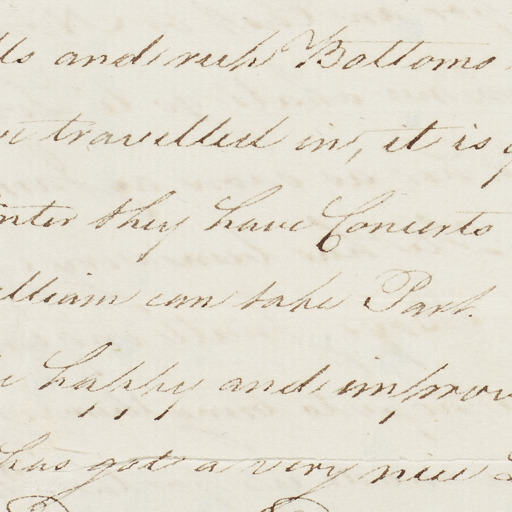 lls and rich Bottoms
ve travelled in, it is g
inter they have Concerts
illiam can take Part.
e happy and improv
has got a very nice